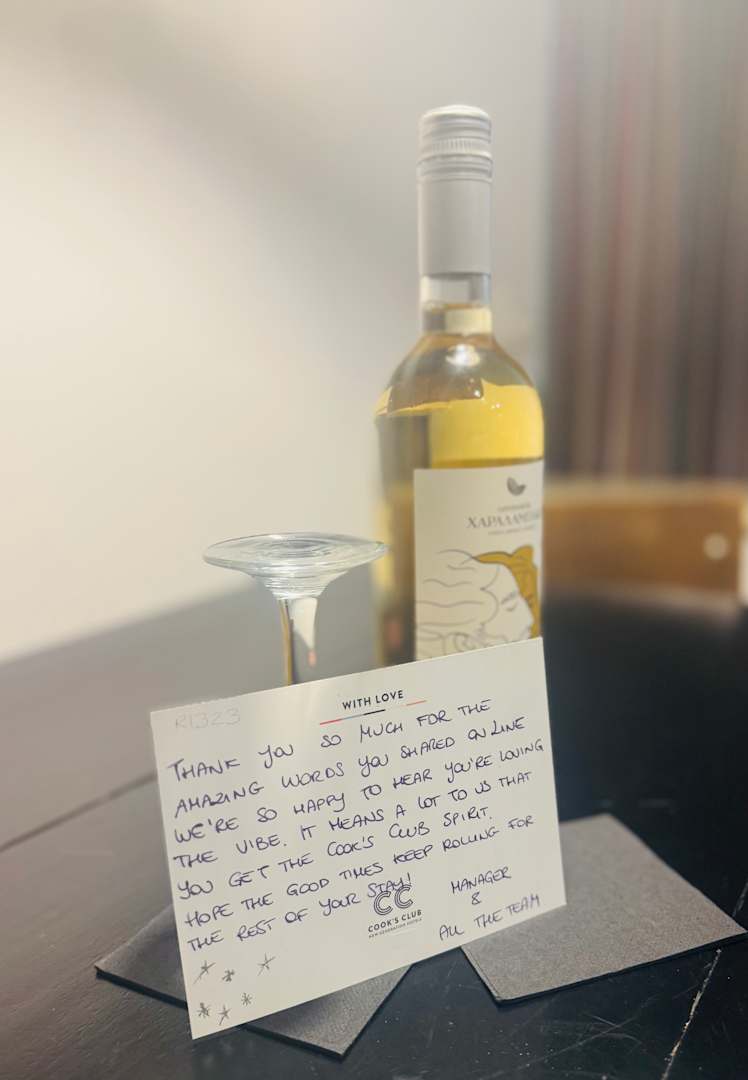 WITH LOVE
R1323
THANK YOU SO MUCH FOR THE
AMAZING WORDS YOU SHARED ONLINE
WE'RE SO HAPPY TO HEAR YOU'RE LOVING
THE VIBE. IT MEANS A LOT TO US THAT
YOU GET THE COOK'S CLUB SPIRIT.
HOPE THE GOOD TIMES KEEP ROLLING FOR
THE REST OF YOUR STAY!
MANAGER
&
ALL THE TEAM
CC
COOK'S CLUB
NEW GENERATION HOTELS